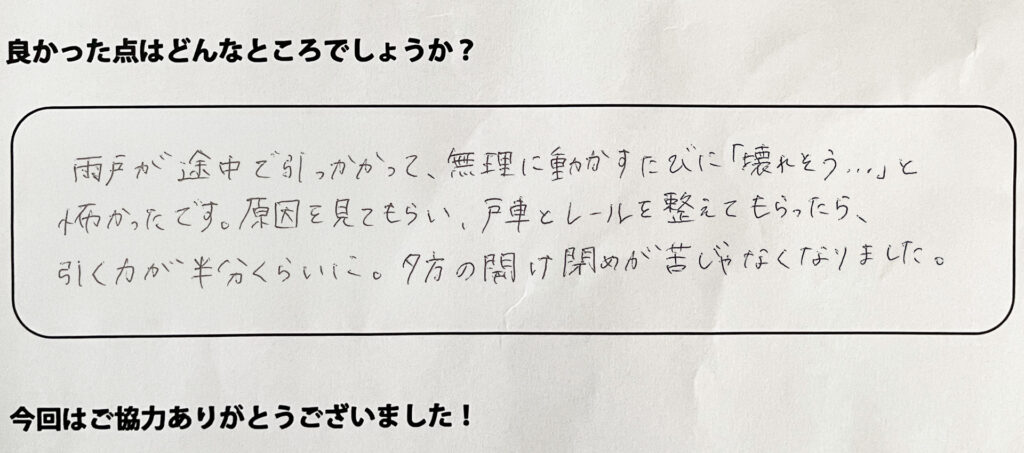 良かった点はどんなところでしょうか？
雨戸が途中で引っかかって、無理に動かすたびに「壊れそう…」と
怖かったです。原因を見てもらい、戸車とレールを整えてもらったら、
引く力が半分くらいに。夕方の開け閉めが苦じゃなくなりました。
今回はご協力ありがとうございました！